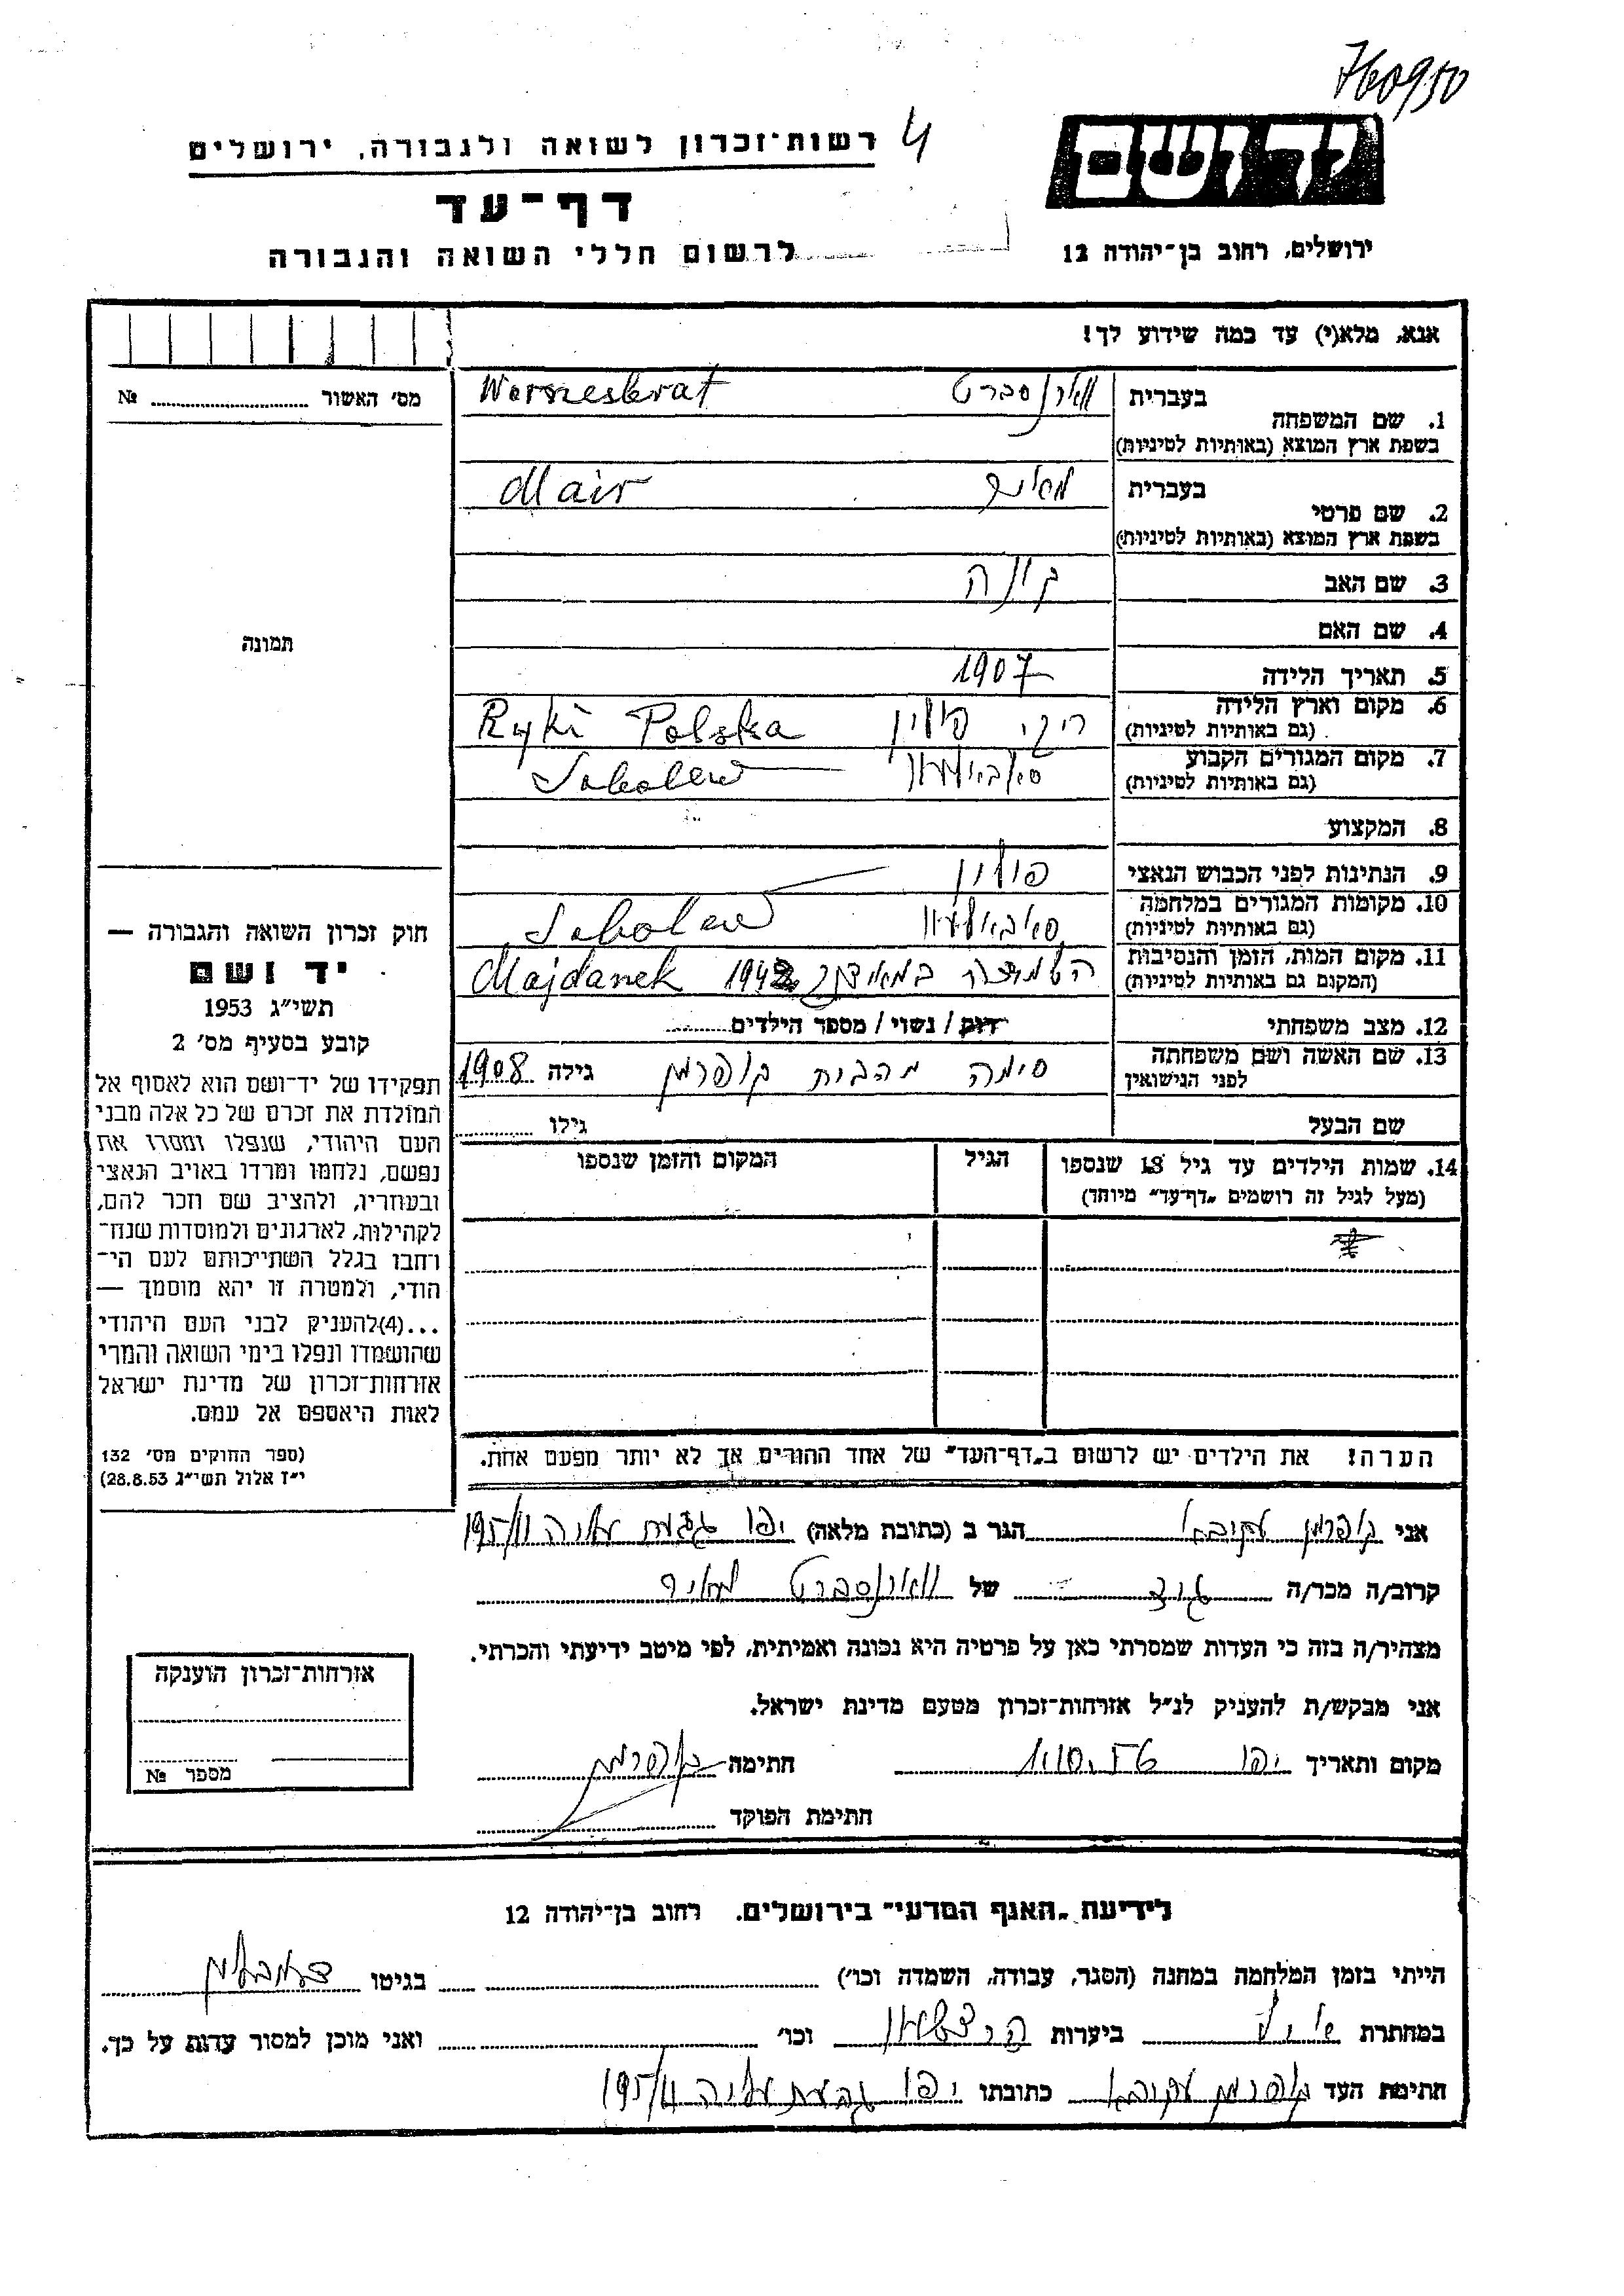 760950
יד ושם
ירושלים, רחוב בן־יהודה 12
רשות־זכרון לשואה ולגבורה, ירושלים 4
דף־עד
לרשום חללי השואה והגבורה
אנא, מלא(י) עד כמה שידוע לך!
מס' האשור № ....................
תמונה
חוק זכרון השואה והגבורה —
יד ושם
תשי״ג 1953
קובע בסעיף מס' 2
תפקידו של יד־ושם הוא לאסוף אל
המולדת את זכרם של כל אלה מבני
העם היהודי, שנפלו ומסרו את
נפשם, נלחמו ומרדו באויב הנאצי
ובעוזריו, ולהציב שם וזכר להם,
לקהילות, לארגונים ולמוסדות שנח־
רחבו בגלל השתייכותם לעם הי־
הודי, ולמטרה זו יהא מוסמך —
...(4)להעניק לבני העם היהודי
שהושמדו ונפלו בימי השואה והמרי
אזרחות־זכרון של מדינת ישראל
לאות היאספם אל עמם.
(ספר החוקים מס' 132
י״ז אלול תשי״ג 28.8.53)
1. שם המשפחה בעברית
בשפת ארץ המוצא (באותיות לטיניות)
2. שם פרטי בעברית מאיר Mair
בשפת ארץ המוצא (באותיות לטיניות)
3. שם האב יונה
4. שם האם
5. תאריך הלידה 1907
6. מקום וארץ הלידה ריקי פולין Ryki Polska
(גם באותיות לטיניות)
7. מקום המגורים הקבוע Sobolew
(גם באותיות לטיניות)
8. המקצוע
9. הנתינות לפני הכבוש הנאצי פולין
10. מקומות המגורים במלחמה Sobolew
(גם באותיות לטיניות)
11. מקום המות, הזמן והנסיבות 1942 Majdanek
(המקום גם באותיות לטיניות)
12. מצב משפחתי רווק / נשוי / מספר הילדים
13. שם האשה ושם משפחתה סימה מהבית קופרמן גילה 1908
לפני הנישואין
שם הבעל גילו
14. שמות הילדים עד גיל 18 שנספו הגיל המקום והזמן שנספו
(מעל לגיל זה רושמים „דף־עד״ מיוחד)
הערה! את הילדים יש לרשום ב„דף־העד״ של אחד ההורים אך לא יותר מפעם אחת.
אני קופרמן יעקב הגר ב (כתובת מלאה) יפו גבעת עליה
קרוב/ה מכר/ה גיס של מאיר
מצהיר/ה בזה כי העדות שמסרתי כאן על פרטיה היא נכונה ואמיתית, לפי מיטב ידיעתי והכרתי.
אני מבקש/ת להעניק לנ״ל אזרחות־זכרון מטעם מדינת ישראל.
מקום ותאריך יפו 1.10.56 חתימה קופרמן
חתימת הפוקד
אזרחות־זכרון הוענקה
מספר №
לידיעת „האגף המדעי״ בירושלים, רחוב בן־יהודה 12
הייתי בזמן המלחמה במחנה (הסגר, עבודה, השמדה וכו') בגיטו
במחתרת ביערות וכו' ואני מוכן למסור עדות על כך.
חתימת העד קופרמן יעקב כתובתו יפו גבעת עליה